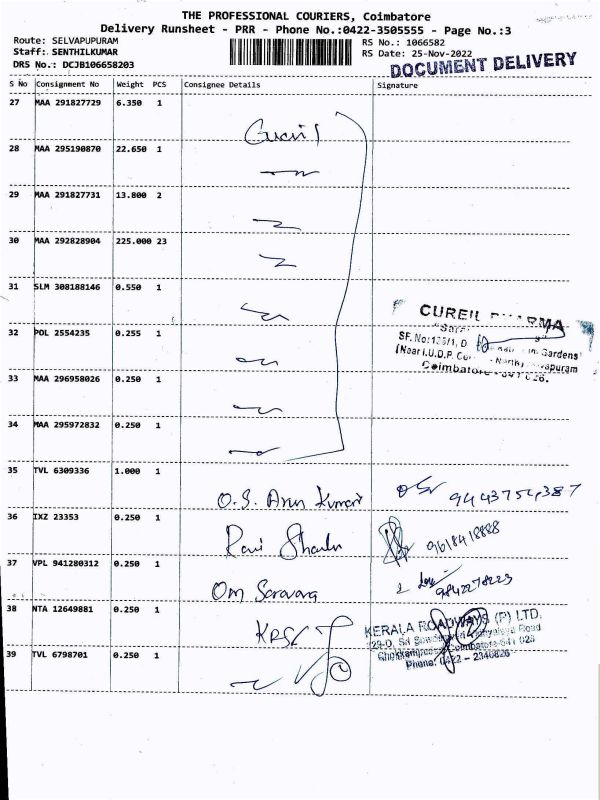 THE PROFESSIONAL COURIERS, Coimbatore
Delivery Runsheet - PRR - Phone No.:0422-3505555 - Page No.:3
Route: SELVAPUPURAM
RS No.: 1066582
Staff: SENTHILKUMAR
RS Date: 25-Nov-2022
DRS No.: DCJB106658203
DOCUMENT DELIVERY
S No Consignment No Weight PCS Consignee Details Signature
27 MAA 291827729 6.350 1
28 MAA 295190870 22.650 1
29 MAA 291827731 13.800 2
30 MAA 292828904 225.000 23
31 SLM 308188146 0.550 1
CUREIL PHARMA
32 POL 2554235 0.255 1
SF.No:
Gardens
(Near I.U.D.P.
Coimbatore
33 MAA 296958026 0.250 1
34 MAA 295972832 0.250 1
35 TVL 6309336 1.000 1
O.S. Arun Kumar 9443754387
36 IXZ 23353 0.250 1
Ravi 9618418888
37 VPL 941280312 0.250 1
Om Saravana 9842278223
38 NTA 12649881 0.250 1
KRS
KERALA ROADWAYS (P) LTD.
Road
Coimbatore-641 026
Phone: 0422 - 2346826
39 TVL 6798701 0.250 1